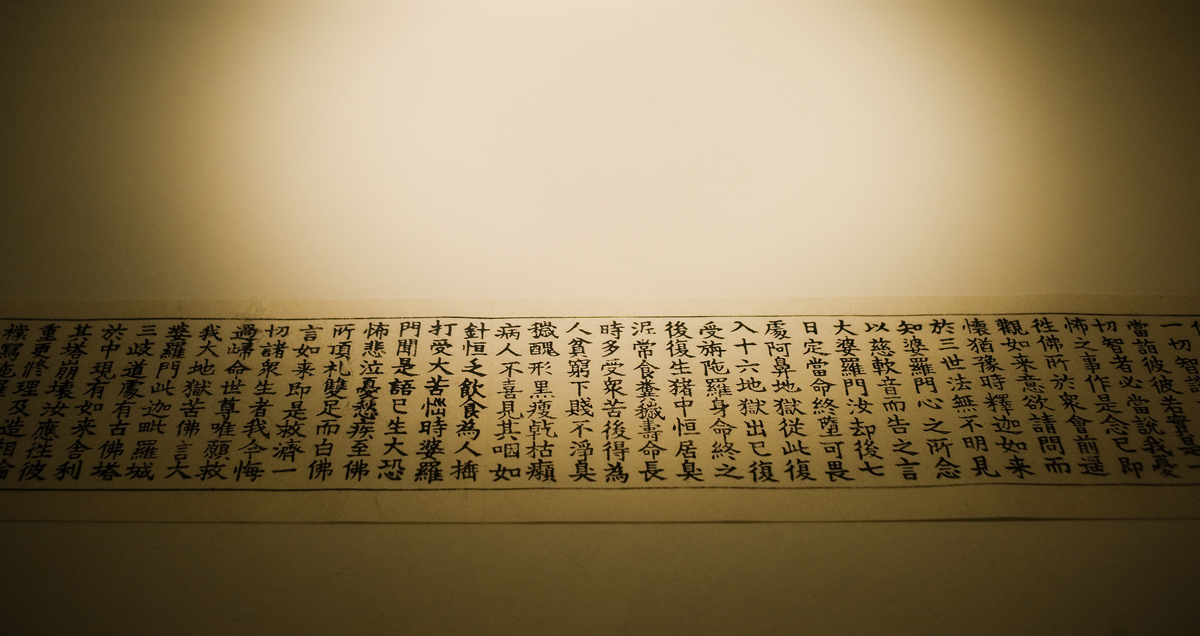 一切智
當詣彼彼若實是一
切智者必當說我憂
怖之事作是念已即
往佛所於衆會前遥
觀如来意欲請問而
懷猶豫時釋迦如来
於三世法無不明見
知婆羅門心之所念
以慈軟音而告之言
大婆羅門汝却後七
日定當命終墮可畏
處阿鼻地獄從此復
入十六地獄出已復
受旃陁羅身命終之
後復生猪中恒居臭
泥常食糞穢壽命長
時多受衆苦後得為
人貧窮下賤不淨臭
穢醜形黒瘦乾枯癩
病人不喜見其咽如
針恒乏飲食為人捶
打受大苦惱時婆羅
門聞是語已生大恐
怖悲泣憂愁疾至佛
所頂礼雙足而白佛
言如来即是救濟一
切諸衆生者我今悔
過歸命世尊唯願救
我大地獄苦佛言大
婆羅門此迦毗羅城
三岐道處有古佛塔
於中現有如来舎利
其塔崩壞汝應往彼
重更修理及造相輪
橖寫陁羅